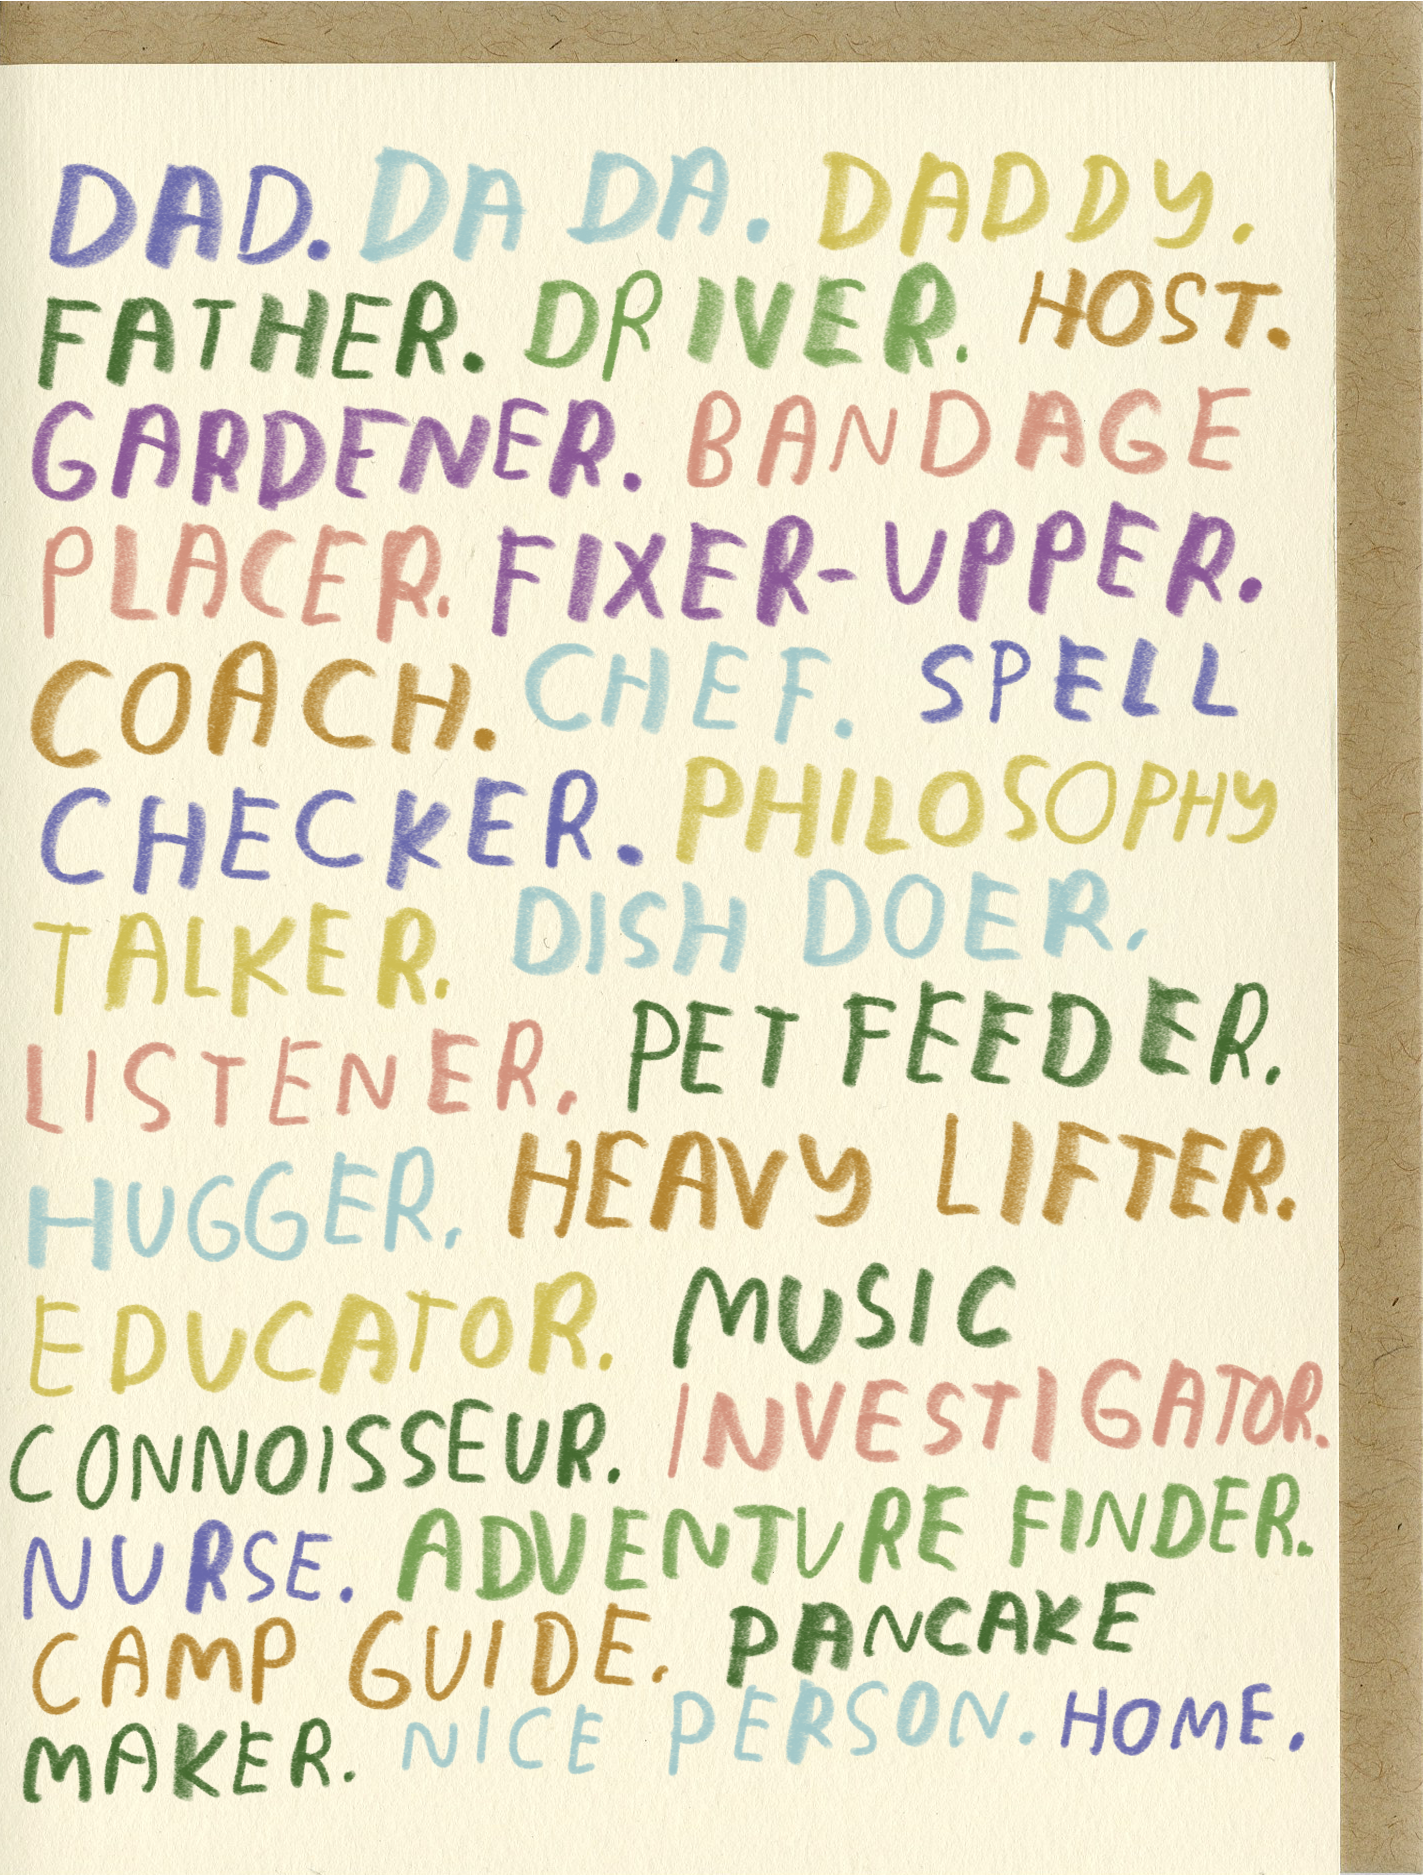 DAD. DA DA. DADDY.
FATHER. DRIVER. HOST.
GARDENER. BANDAGE
PLACER. FIXER-UPPER.
COACH. CHEF. SPELL
CHECKER. PHILOSOPHY
TALKER. DISH DOER.
LISTENER. PET FEEDER.
HUGGER. HEAVY LIFTER.
EDUCATOR. MUSIC
CONNOISSEUR. INVESTIGATOR.
NURSE. ADVENTURE FINDER.
CAMP GUIDE. PANCAKE
MAKER. NICE PERSON. HOME.